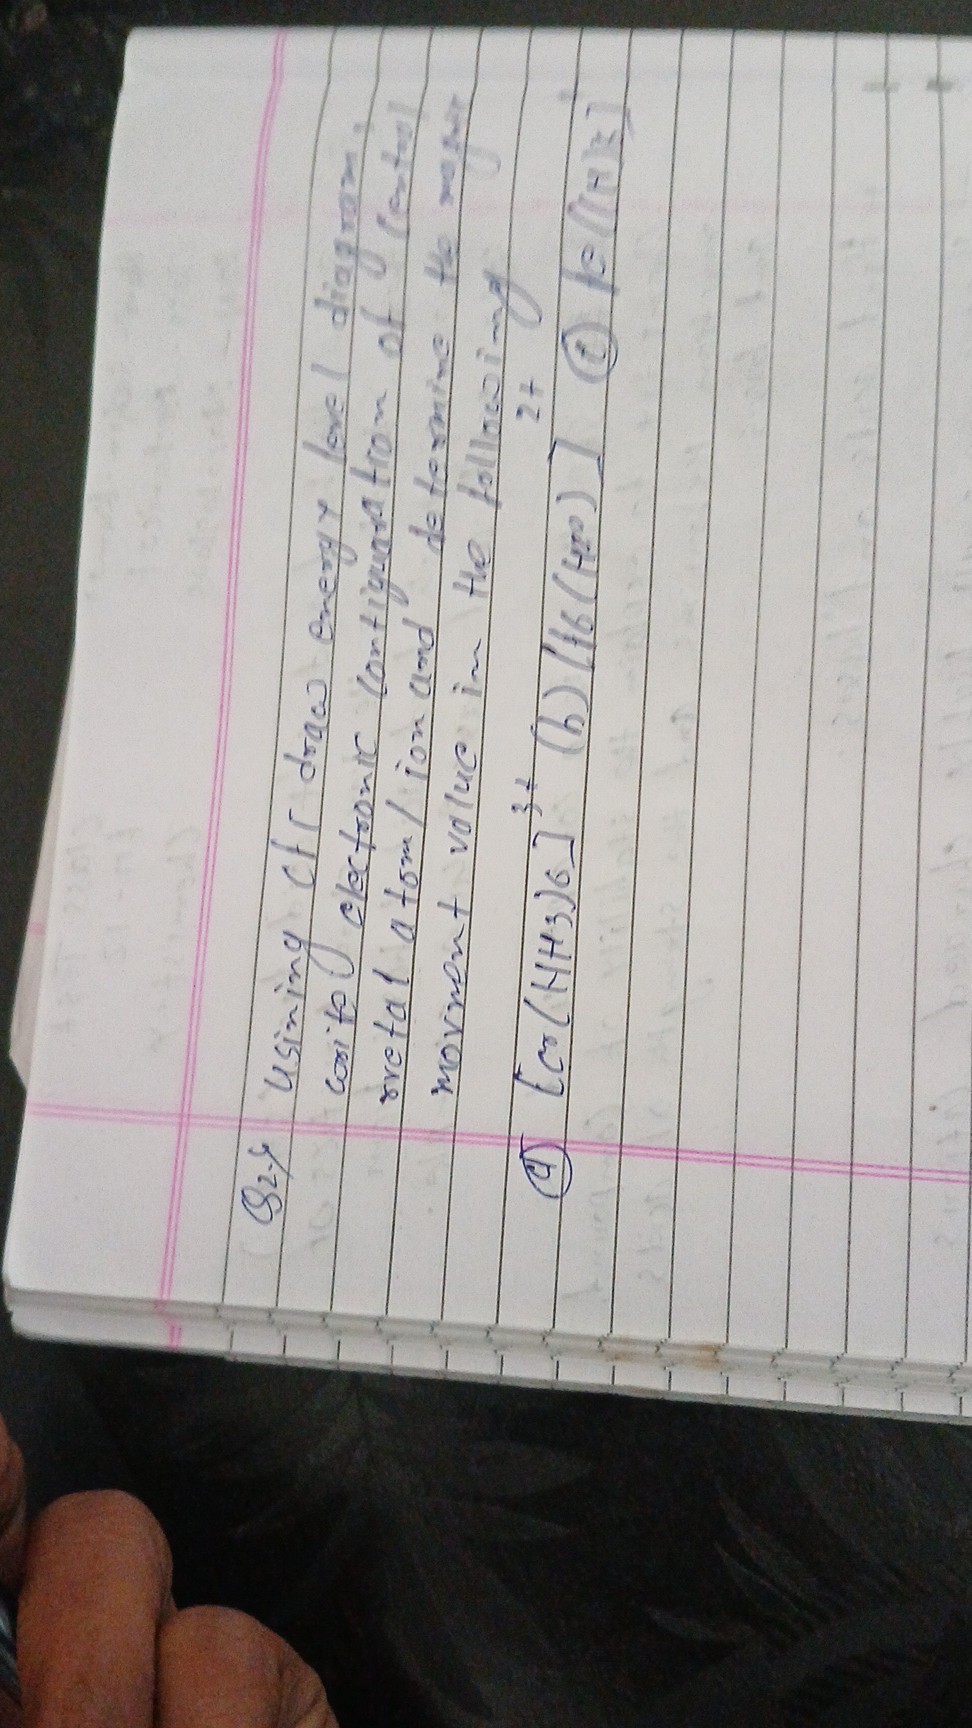 Q24 Usining cfT draw energy level diagram,
write electronic configuration of central
metal atom/ion and determine the
movment value in the following
(a) [cr(NH3)6]3+ (b) [f6(H20)]2+ (c)